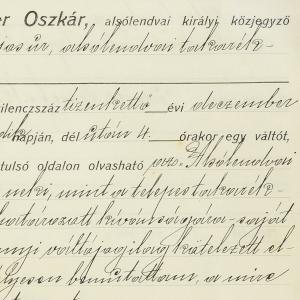 er Oszkár, alsólendvai királyi közjegyző
úr, alsólendvai takarék-
ilenczszáz tizenkettő évi deczember
dik napján, dél után 4. órakor egy váltót,
tulsó oldalon olvasható az Alsólendvai
neki, mint a telepes takarék-
határozott kívánságára - saját
váltójogilag kötelezett el-
bemutattam, a mire